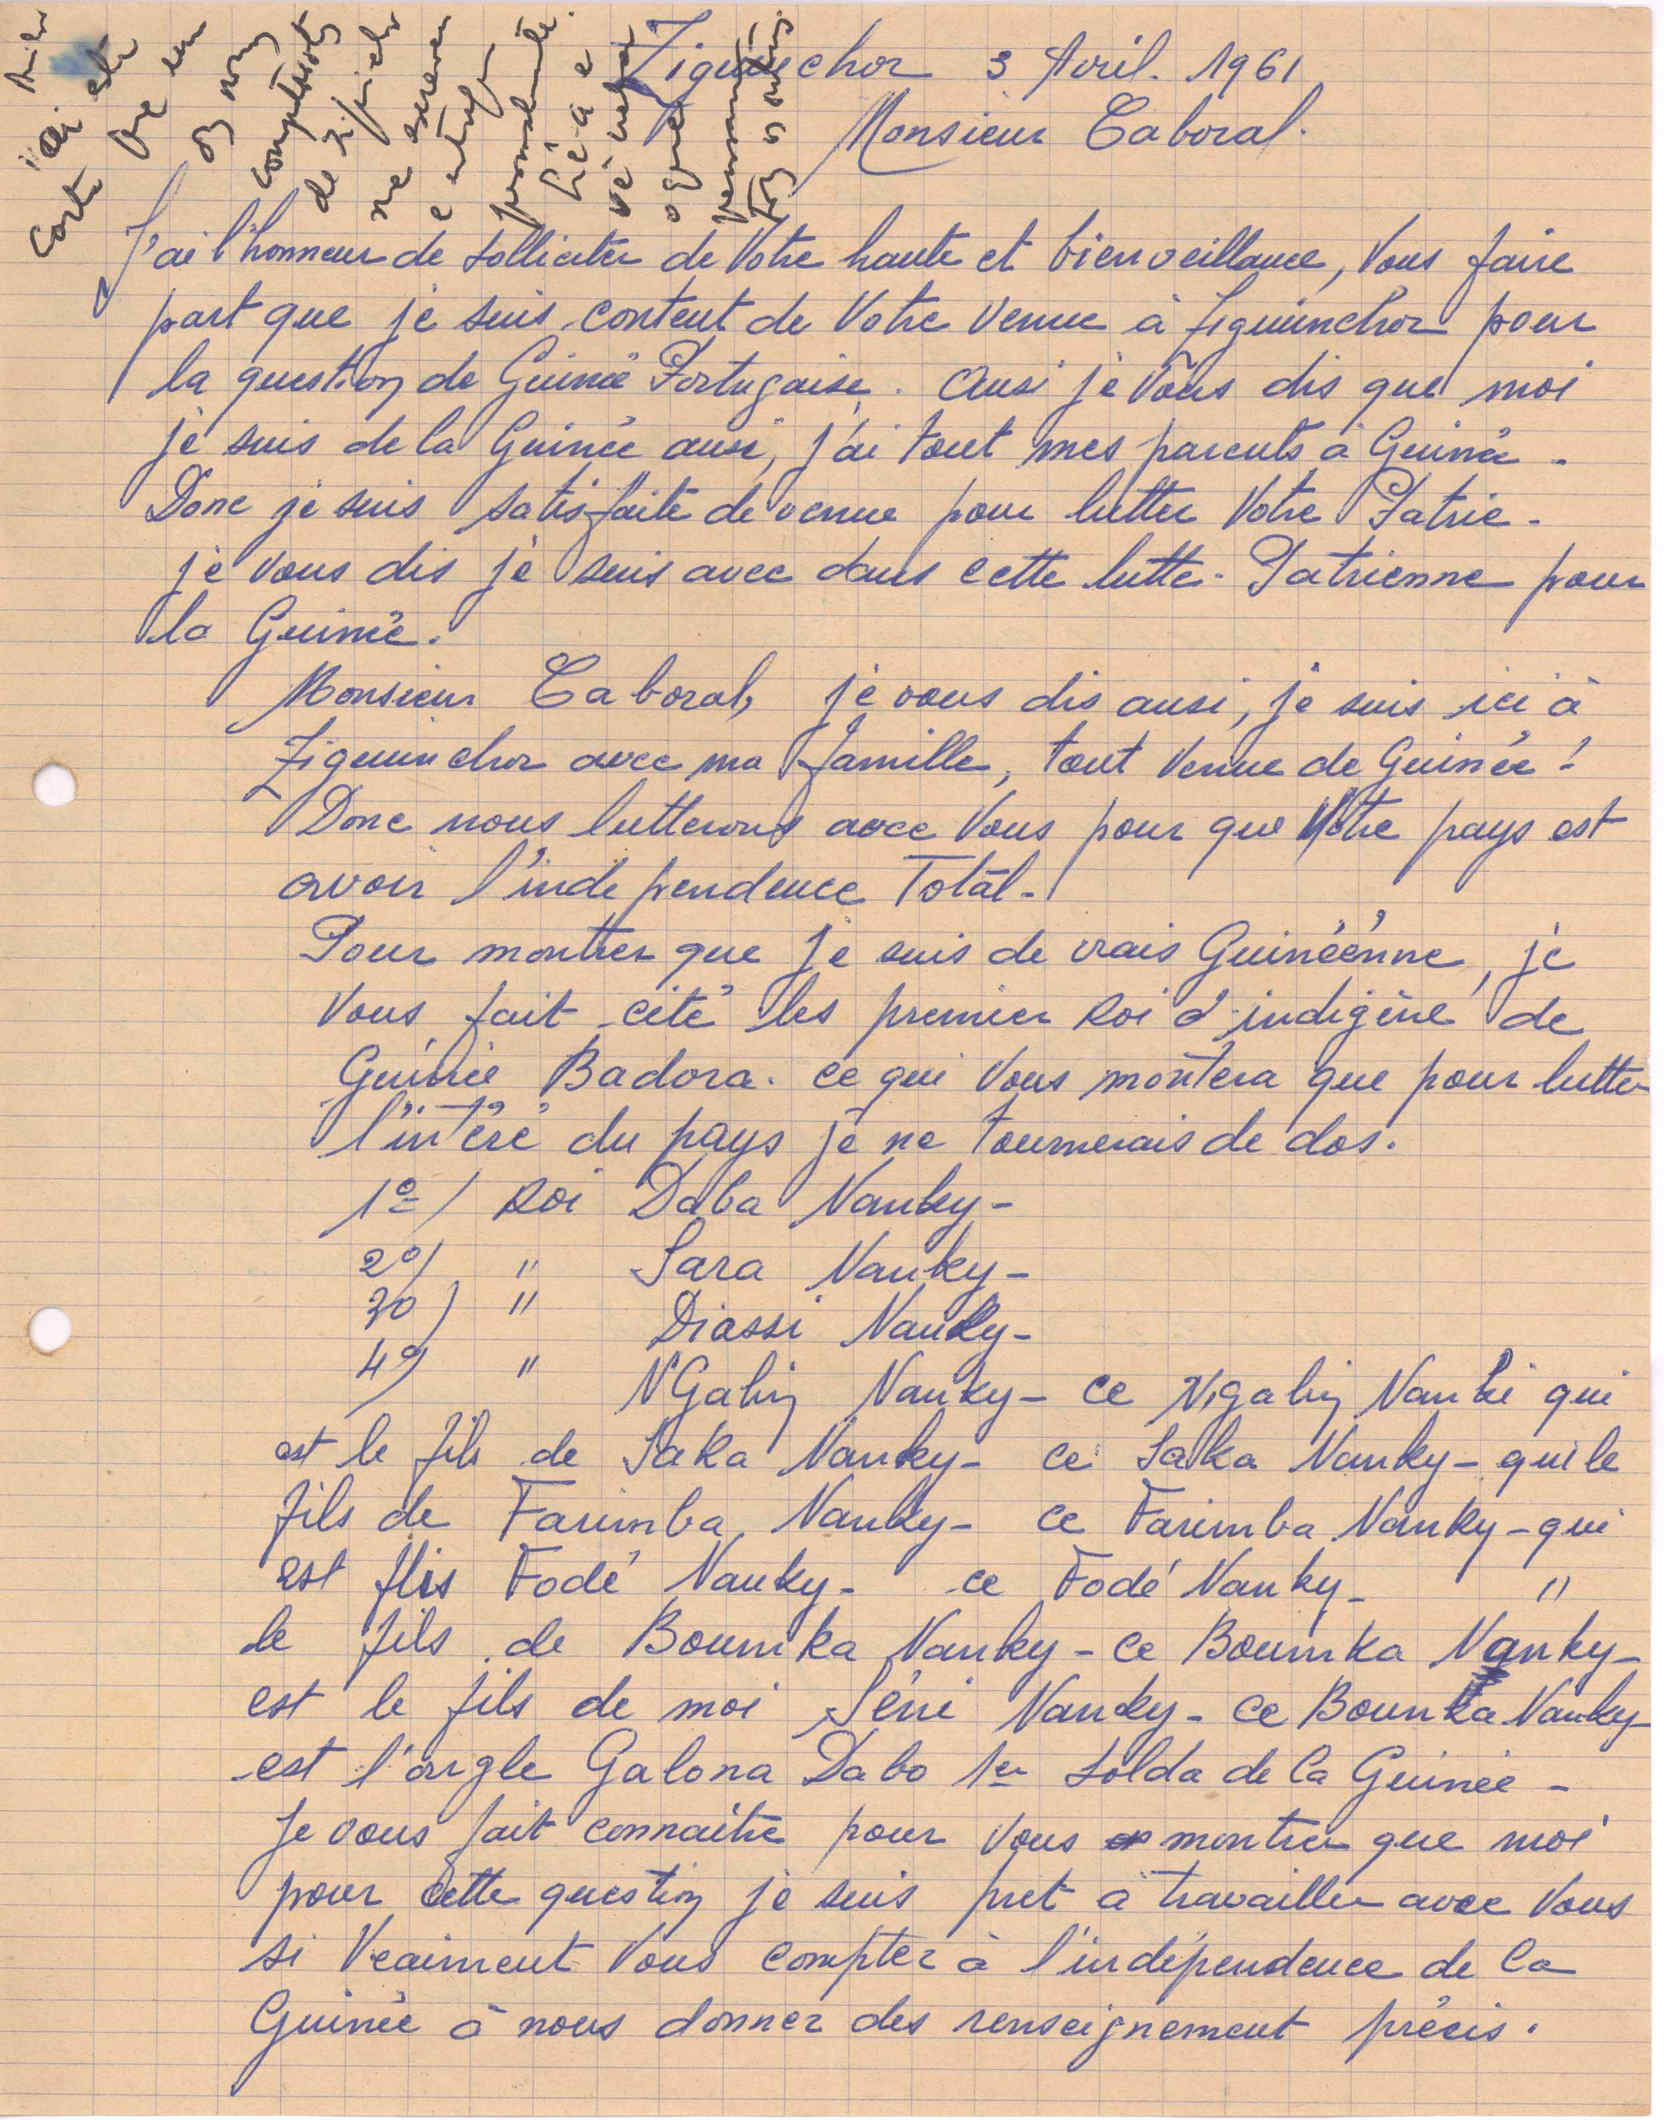 Ziguinchor 3 Avril. 1961
Monsieur Caboral.
J'ai l'honneur de solliciter de Votre haute et bienveillance, Vous faire
part que je suis content de Votre venue à Ziguinchor pour
la question de Guinée Portugaise. Ausi je Vous dis que moi
je suis de la Guinée ausi, j'ai tout mes parents à Guinée -
Donc je suis satisfaite de venue pour lutter Votre Patrie -
je vous dis je suis avec dans cette lutte - Patrienne pour
la Guinée.
Monsieur Caboral, je vous dis ausi, je suis ici à
Ziguinchor avec ma famille, tout Venue de Guinée!
Donc nous lutterons avec Vous pour que Votre pays est
avoir l'independence Total -
Pour montrer que je suis de vrais Guinéénne, je
Vous fait cité les premier Roi d'indigène de
Guinée Badora. ce qui Vous montera que pour lutter
l'intéré du pays je ne tournerais de dos.
1º/ Roi Daba Nanky -
2º/ " Sara Nanky -
3º) " Diassi Nanky -
4º/ " N'Galiy Nanky - ce N'galiy Nanki qui
est le fils de Saka Nanky - ce Saka Nanky - qui le
fils de Farimba Nanky - ce Farimba Nanky - qui
est flis Fodé Nanky - ce Fodé Nanky - "
le fils de Bounka Nanky - ce Bounka Nanky -
est le fils de moi Séni Nanky - ce Bounka Nanky
est l'ongle Galona Dabo 1er solda de la Guinée -
Je vous fait connaitre pour Vous montrer que moi
pour cette question je suis pret à travailler avec Vous
si Vraiment Vous compter à l'indépendence de la
Guinée à nous donner des renseignement précis.
Carta
que um
os nossos
compatriotas
de Ziguinchor
me escreveu
e entregou
pessoalmente.